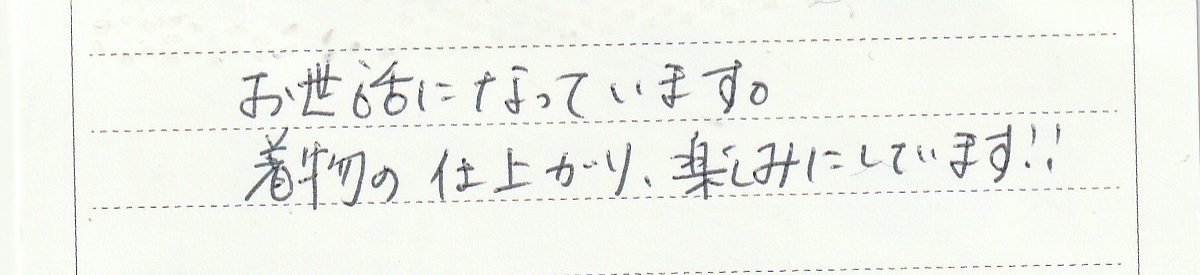 お世話になっています。
着物の仕上がり、楽しみにしています!!